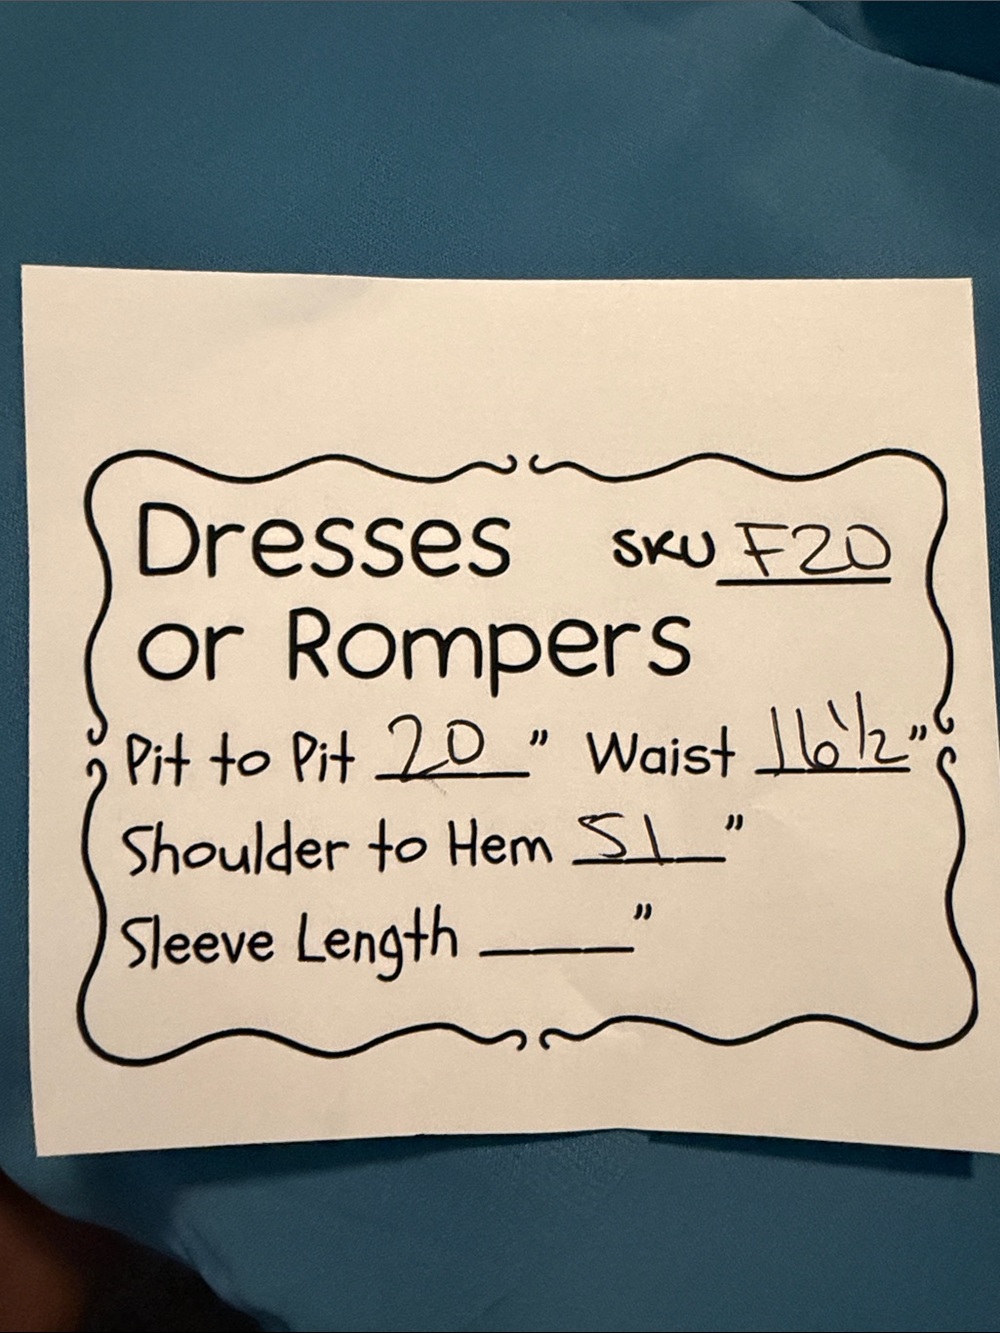 Dresses SKU F20
or Rompers
Pit to Pit 20 " Waist 16 1/2 "
Shoulder to Hem 51 "
Sleeve Length ____ "